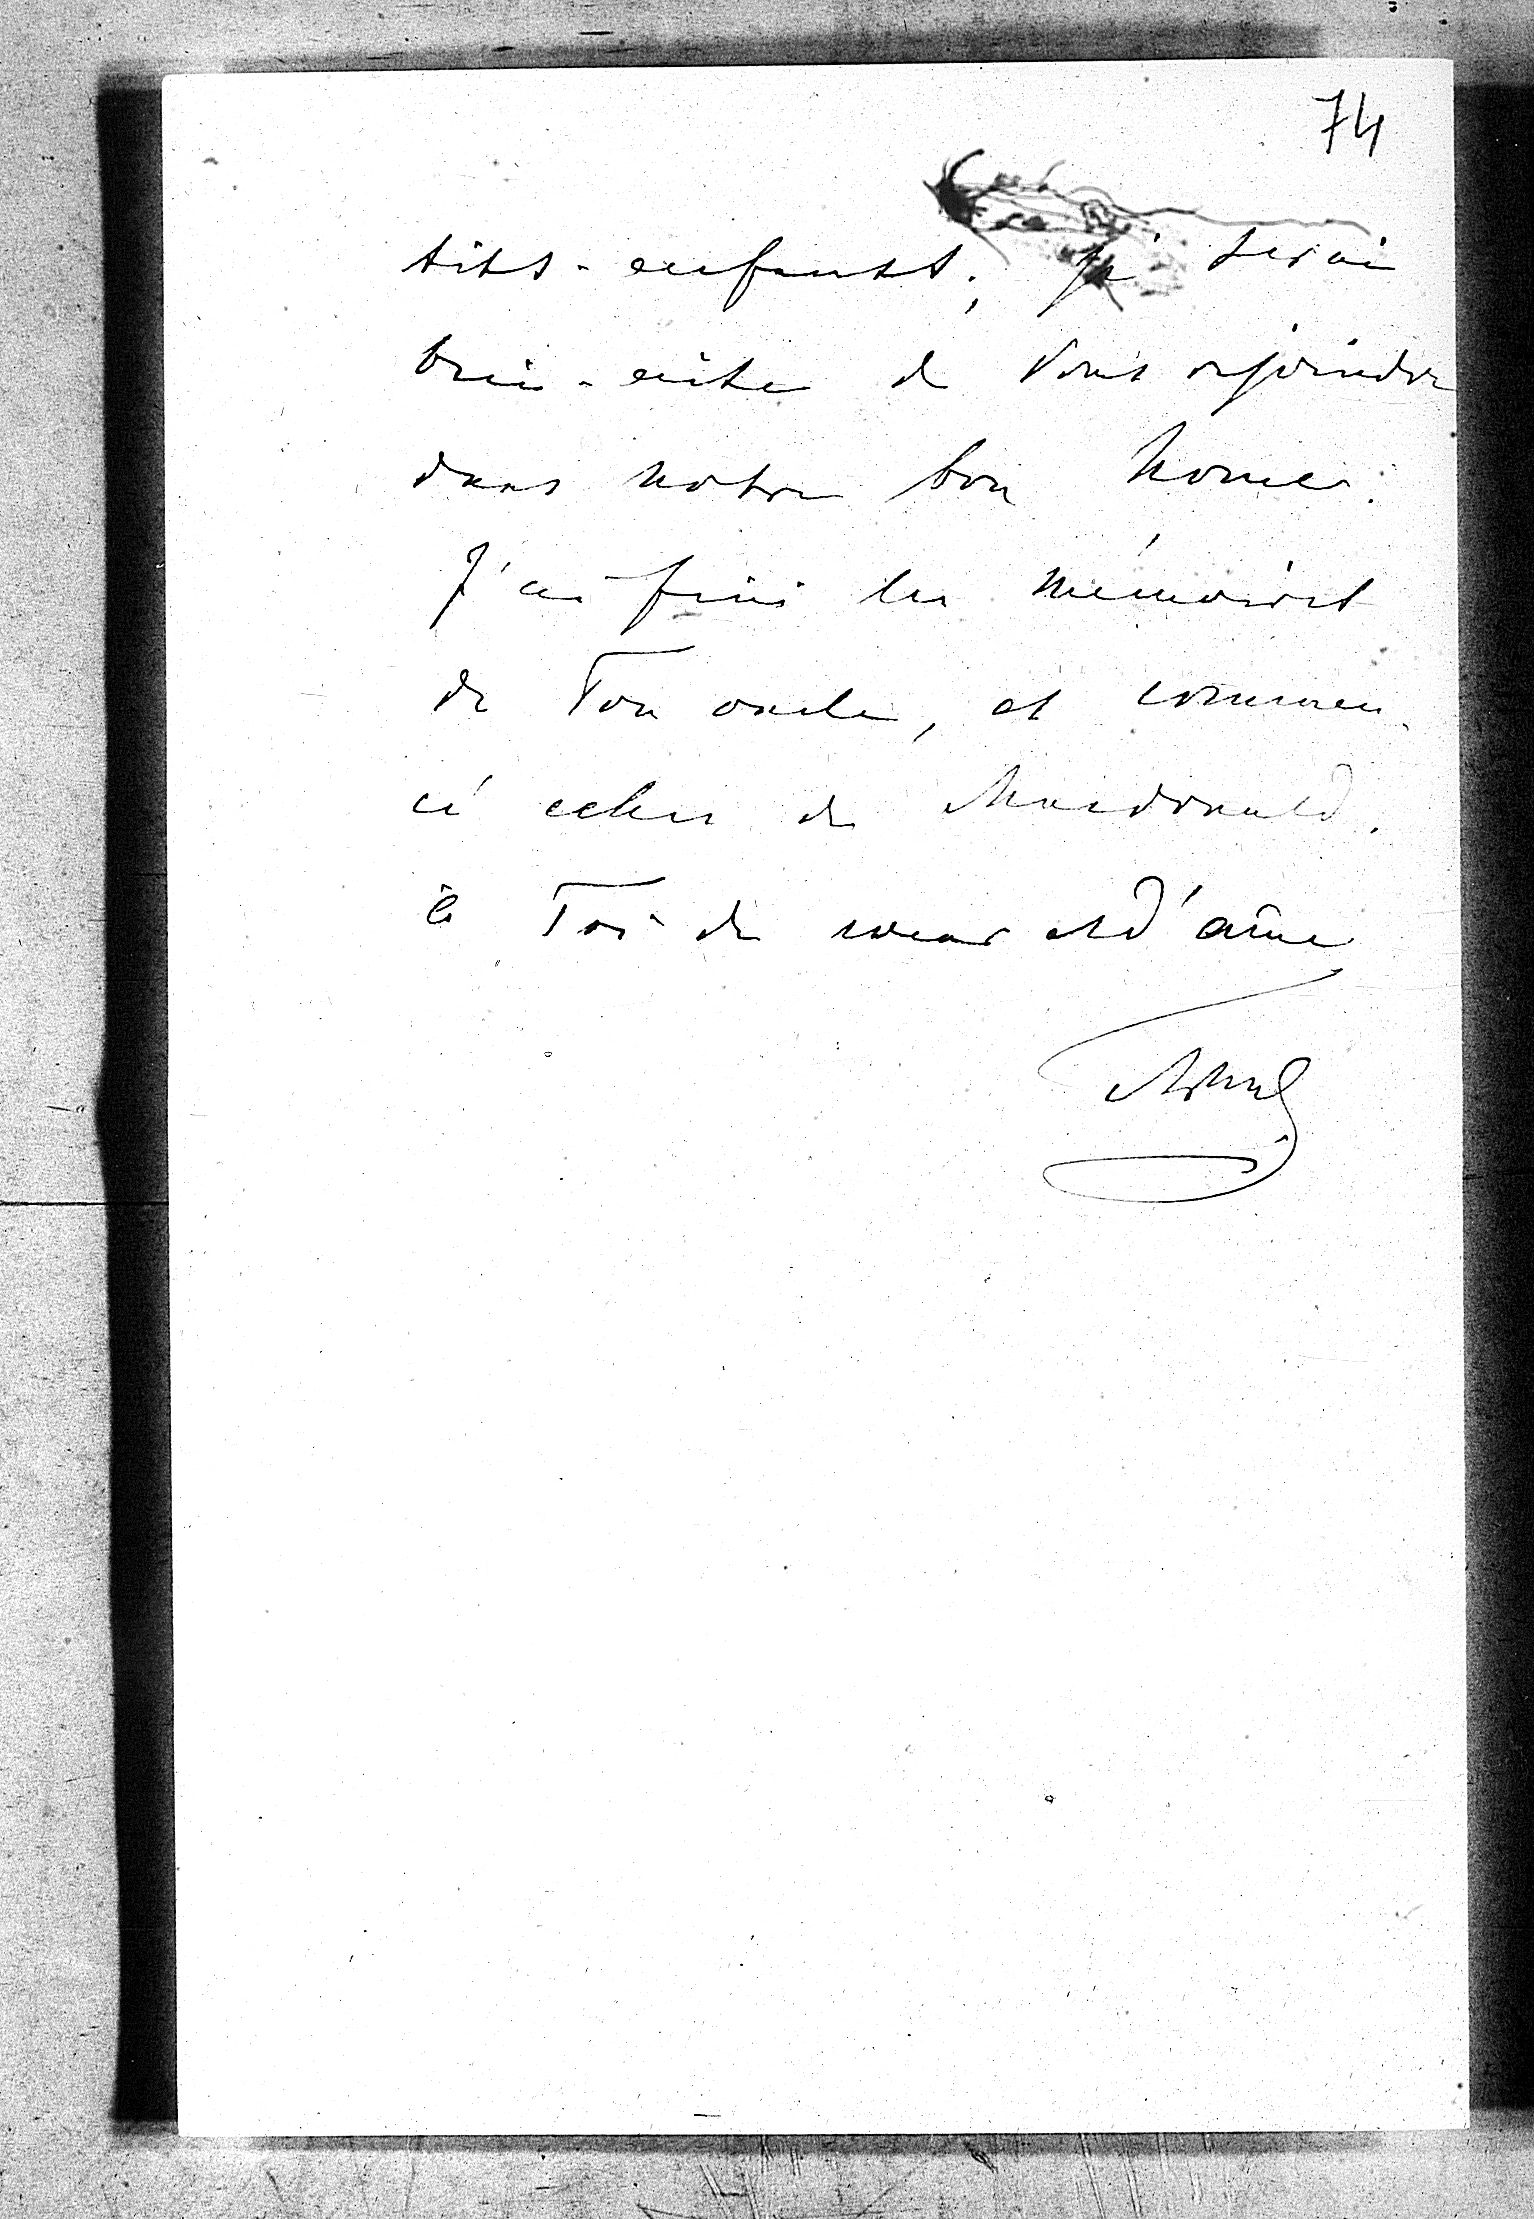 74
tits-enfants; je serai
bien-aise de Vous rejoindre
dans notre bon home.
J'ai fini les mémoires
de Ton oncle, et commen-
cé celles de Macdonald.
à Toi de coeur et d'âme